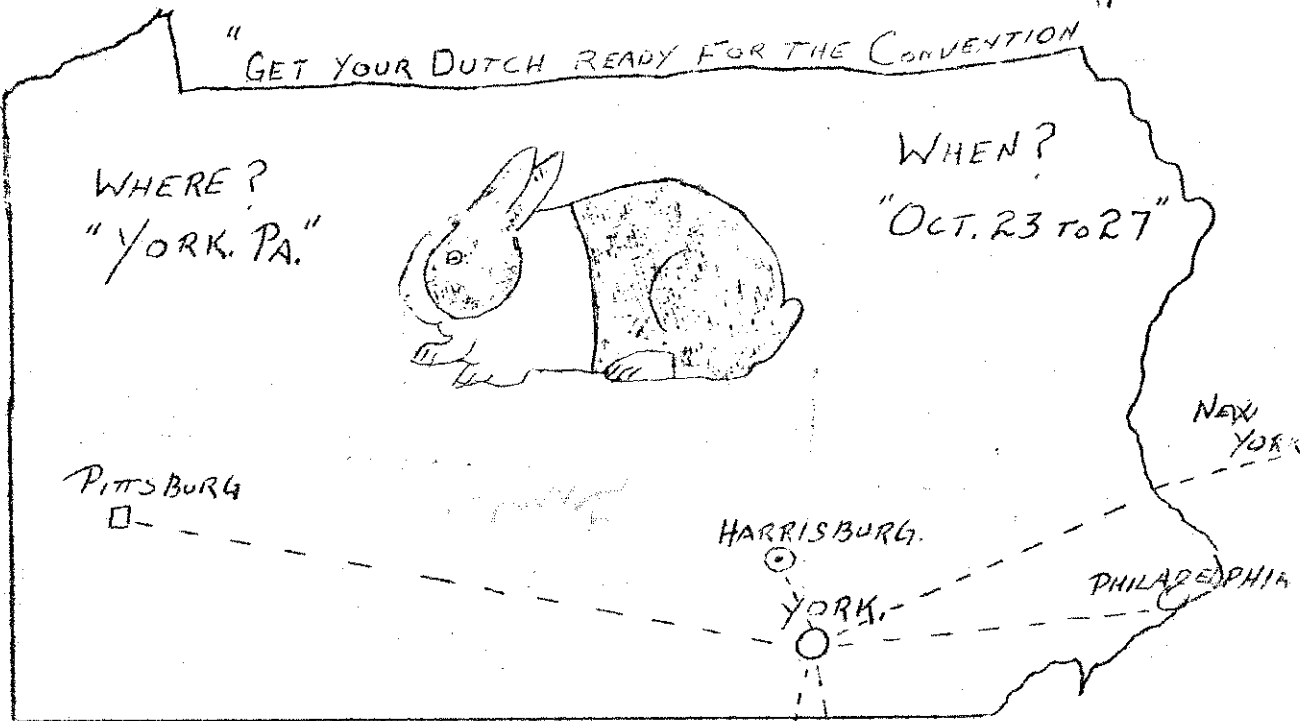 "GET YOUR DUTCH READY FOR THE CONVENTION"
WHERE?
"YORK. PA."
WHEN?
"OCT. 23 TO 27"
NEW
YORK
PITTSBURG
HARRISBURG.
YORK.
PHILADELPHIA